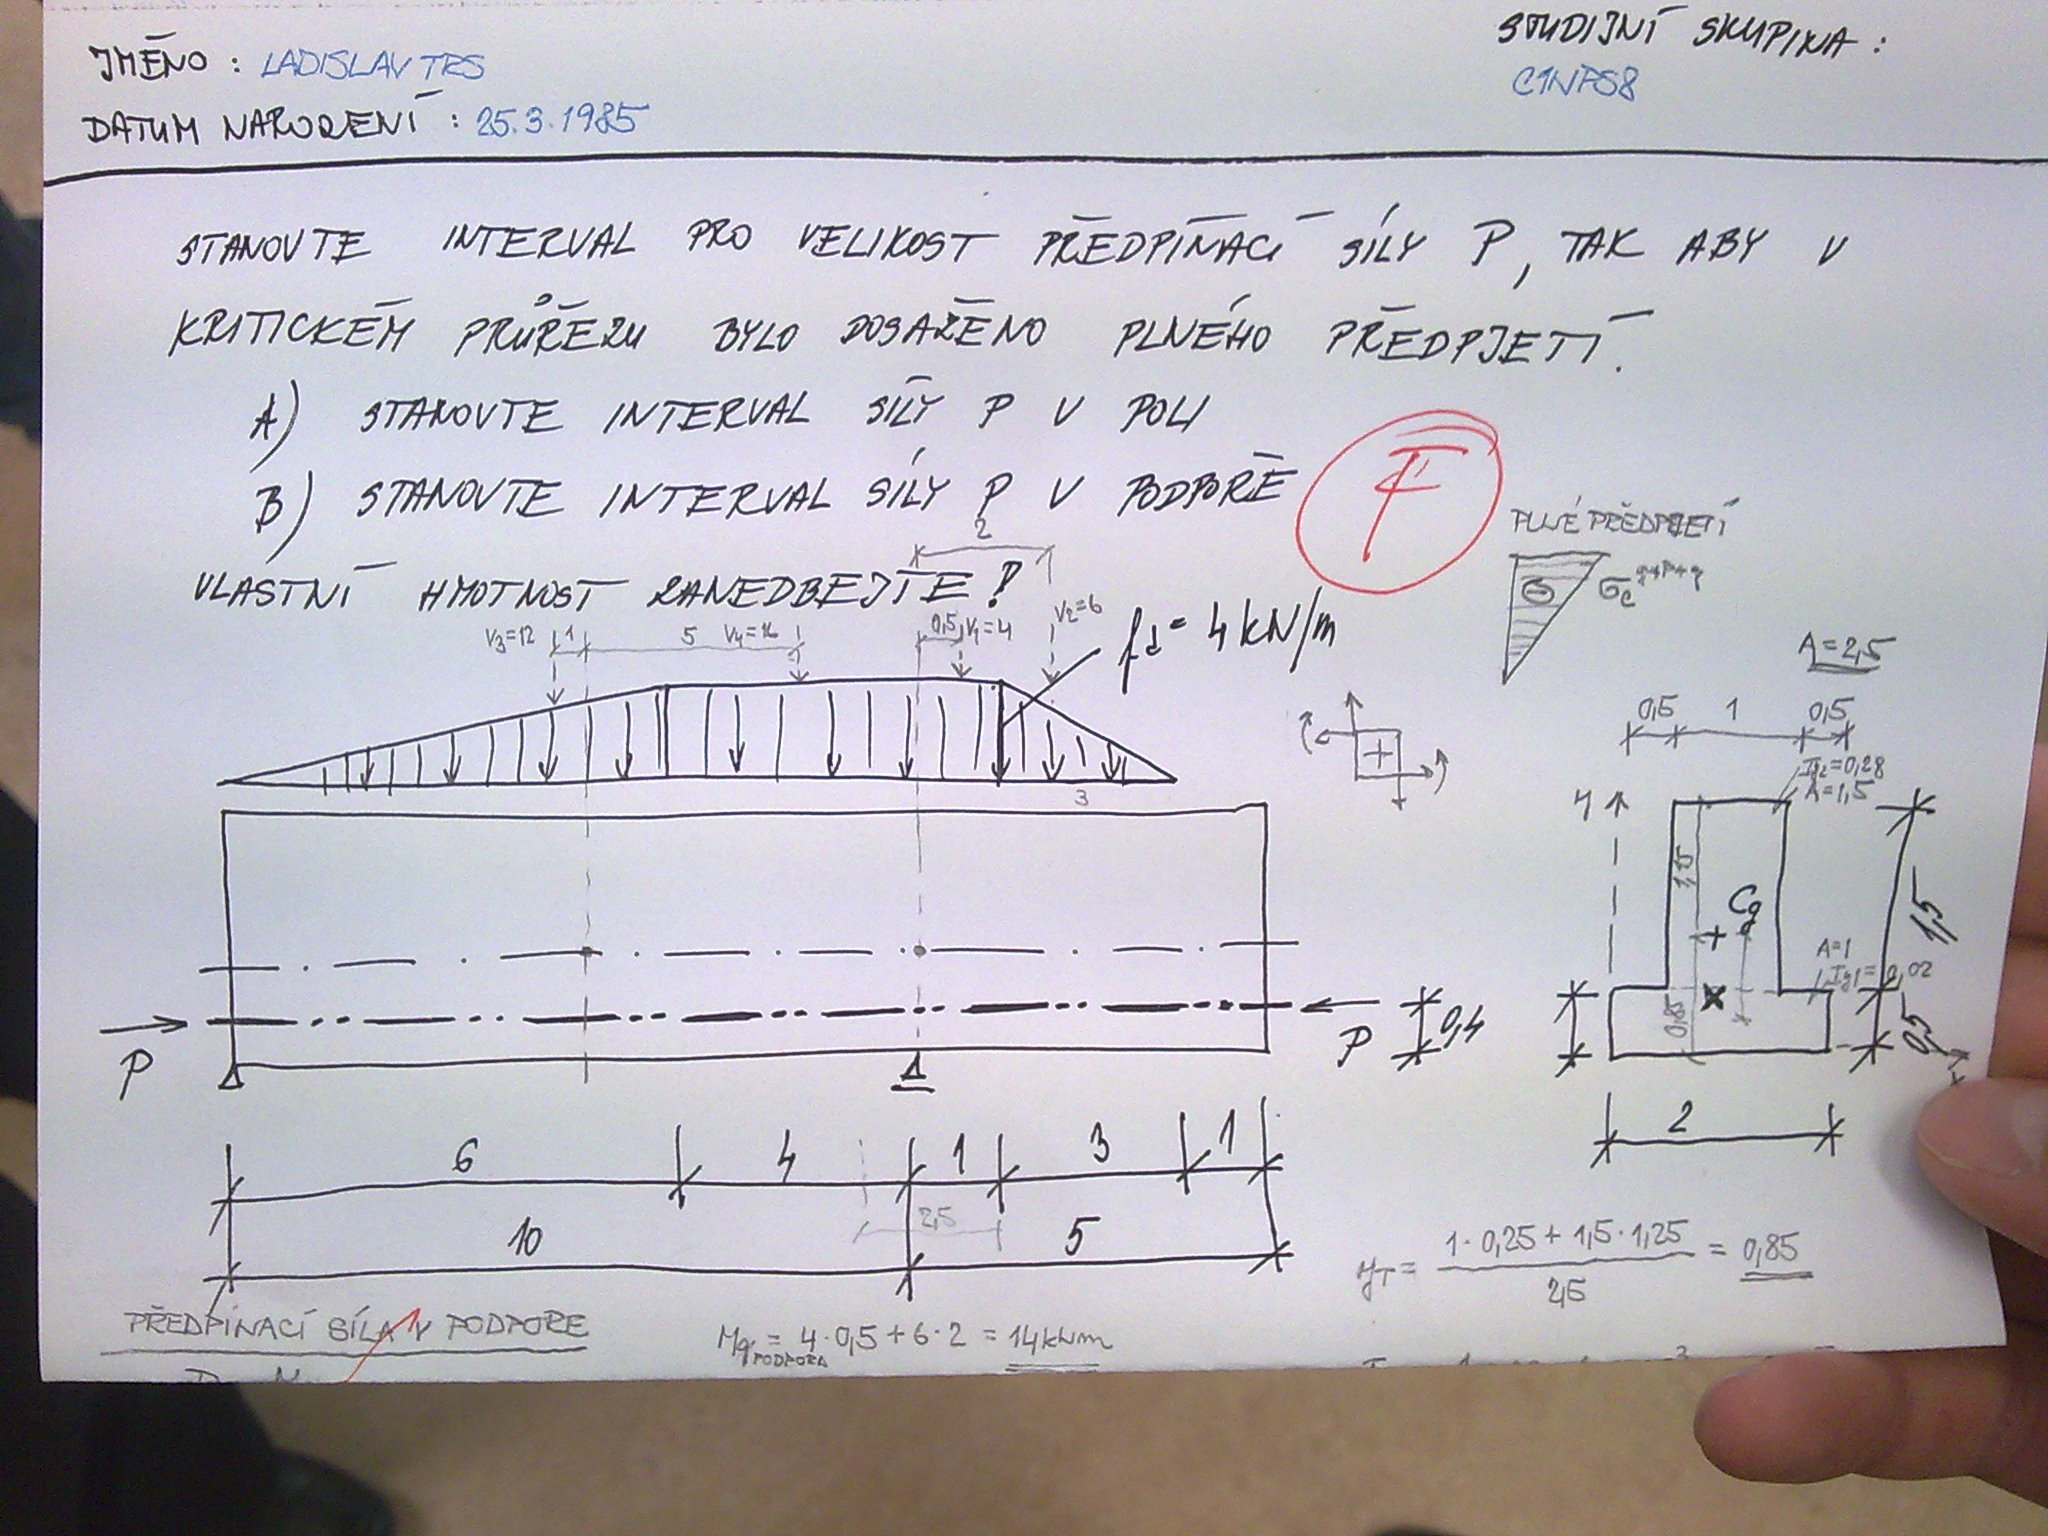 JMÉNO : LADISLAV TRS
STUDIJNÍ SKUPINA :
C1NPS8
DATUM NAROZENÍ : 25.3.1985
STANOVTE INTERVAL PRO VELIKOST PŘEDPÍNACÍ SÍLY P, TAK ABY V
KRITICKÉM PRŮŘEZU BYLO DOSAŽENO PLNÉHO PŘEDPJETÍ.
A) STANOVTE INTERVAL SÍLY P V POLI
B) STANOVTE INTERVAL SÍLY P V PODPOŘE
F
PLNÉ PŘEDPJETÍ
VLASTNÍ HMOTNOST ZANEDBEJTE!
2
σc g+P+q
V3=12
1
5
V4=16
0,5
V1=4
V2=6
fd = 4 kN/m
A=2,5
0,5 1 0,5
Ig2=0,28
A=1,5
3
+
Y
1,15
Cg
1,5
A=1
Ig1=0,02
0,85
0,5
P
P
0,4
2
6 4 1 3 1
2,5
10 5
yT = 1·0,25 + 1,5·1,25 / 2,5 = 0,85
PŘEDPÍNACÍ SÍLA V PODPOŘE
Mq PODPORA = 4·0,5 + 6·2 = 14 kNm